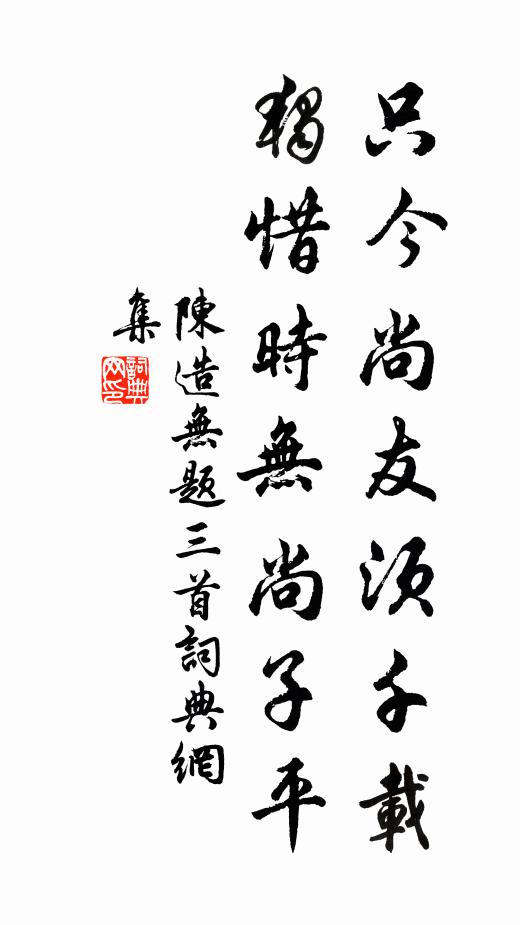 只今尚友須千載
獨惜時無尚子平
陳造無題三首詞典網
集
詞典
网印